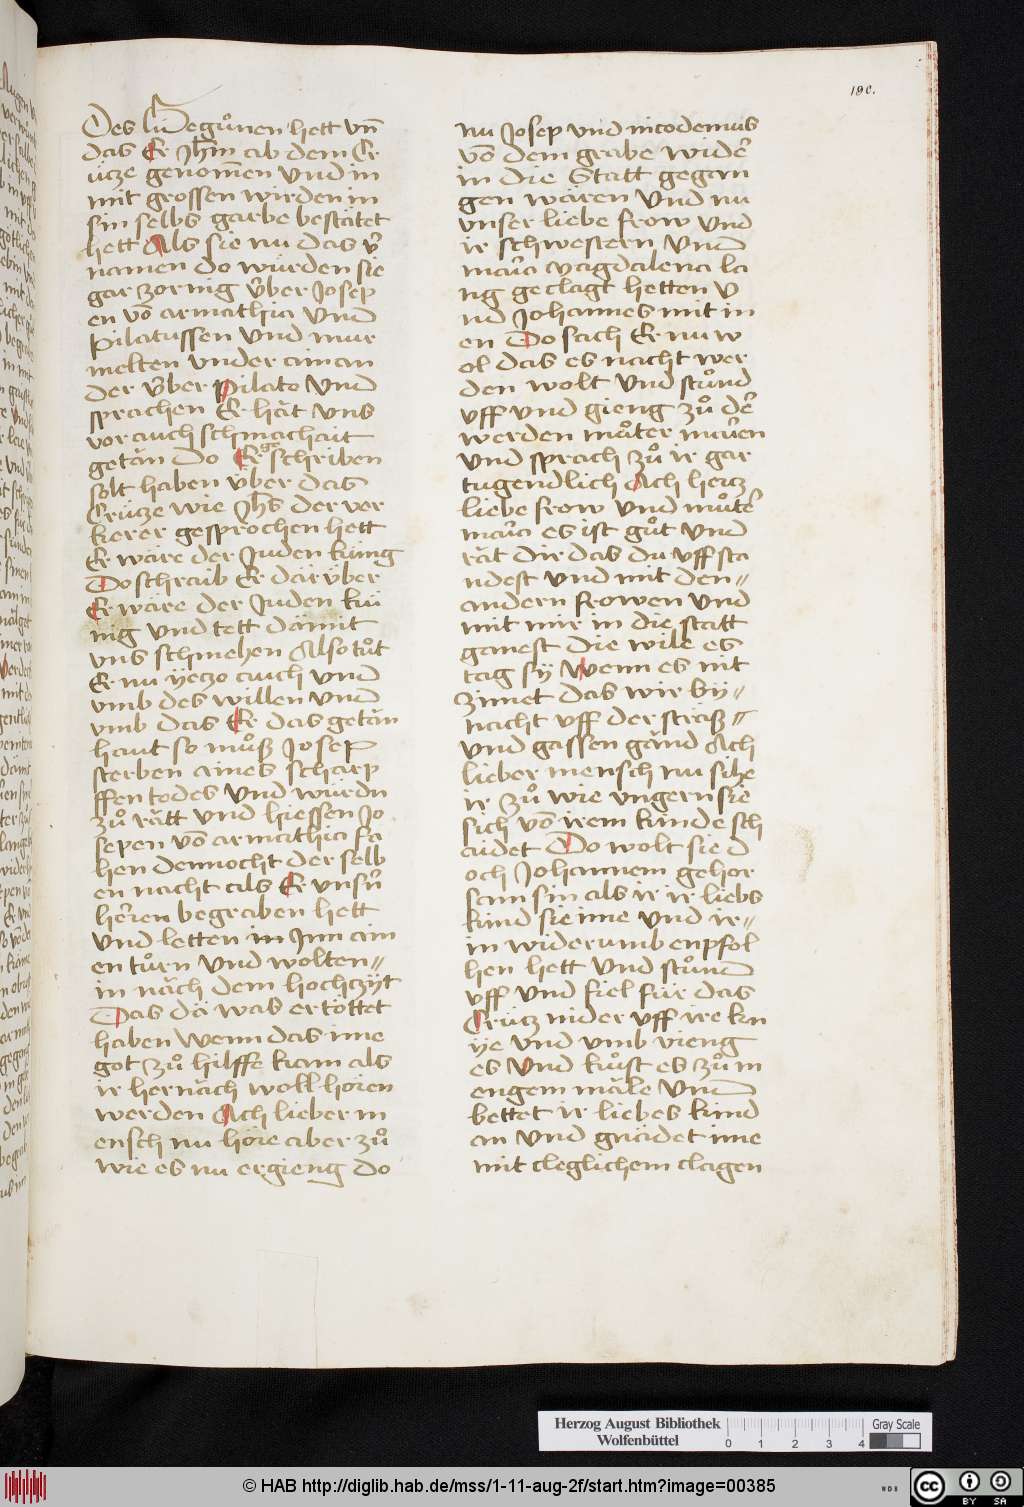 190.
Des liegůnen hett vn̄
das Er Jhm̄ ab dem Cr
ücze genom̄en vnd in
mit grossen wirden in
sin selbs garbe bestätet
hett Als sie nu das v̉
namen do würden sie
gar zornig v̈ber Josep
en vō armathia vnd
Pilatussen vnd mur
melten vnder ainan
der v̈ber Pilato vnd
sprachen Er hăt vns
vor auch schmachait
getăn do Er geschriben
solt haben v̈ber das
Crütze wie Jhs̄ der ver
kerer gesprochen hett
Er wäre der Juden küng
Do schraib Er dăr v̈ber
Er wäre der Juden kü
nig vnd tett dămit
vns schmehen Also tůt
Er nu yeczo auch vnd
vmb des willen vnd
vmb das Er das getăn
haut so můß Josep
sterben aines scharp
ffen todes vnd würdn
zů rătt vnd hiessen Jo
sepen vō armathia fa
hen dennocht der selb
en nacht als Er vnsn̉
hẻren begraben hett
vnd letten in Jnn ain
en tůrn vnd wolten〃
in năch dem hochzÿt
Das dă was ertöttet
haben Wenn das ime
got zů hilffe kam als
ir her năch woll hören
werden Ach lieber m
ensch nu höre aber zů
wie es nu ergieng do
nu Josep vnd nicodemus
vō dem grabe widẻ
in die Statt gegan
gen wären vnd nu
vnser liebe frow vnd
ir schwestern vnd
mar̉a magdalena la
ng geclagt hetten v
nd Johannes mit in
en Do sach Er nu w
ol das es nacht wer
den wolt vnd stůnd
vff vnd gieng zů dẻ
werden můter mar̉en
vnd sprach zů ir gar
tugendlich Ach hercz
liebe frow vnd můtẻ
mar̉a es ist gůt vnd
răt dir das du vff sta
ndest vnd mit den〃
andern frowen vnd
mit mir in die statt
gangest die wile es
tag sÿ Wenn es nit
zimet das wir bÿ〃
nacht vff der străß〃
vnd gassen gănd Ach
lieber mensch nu sihe
ir zů wie vngern sie
sich vō irem kinde sch
aidet Do wolt sie d
och Johannem gehor
sam sin als ir ir liebs
kind sie ime vnd ir〃
in widerumb enpfol
hen hett vnd stůnd
vff vnd fiel für das
Crütz nider vff ire kn
ÿe vnd vmb vieng
es vnd kůst es zům
engem măle vnd
bettet ir liebes kind
an vnd gnădet ime
mit cleglichem clagen
Herzog August Bibliothek
Wolfenbüttel
0 1 2 3 4
Gray Scale
© HAB http://diglib.hab.de/mss/1-11-aug-2f/start.htm?image=00385
WDB
cc BY SA